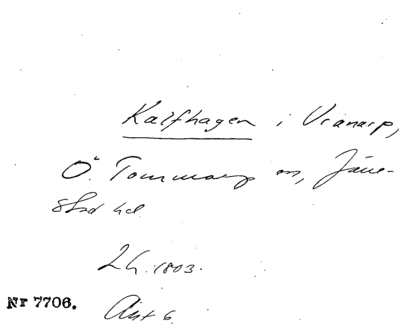 Kalfhagen i Vranarp,
Ö. Tommarp sn, Järre-
stad hd
Lh. 1803.
Nr 7706. Akt 6